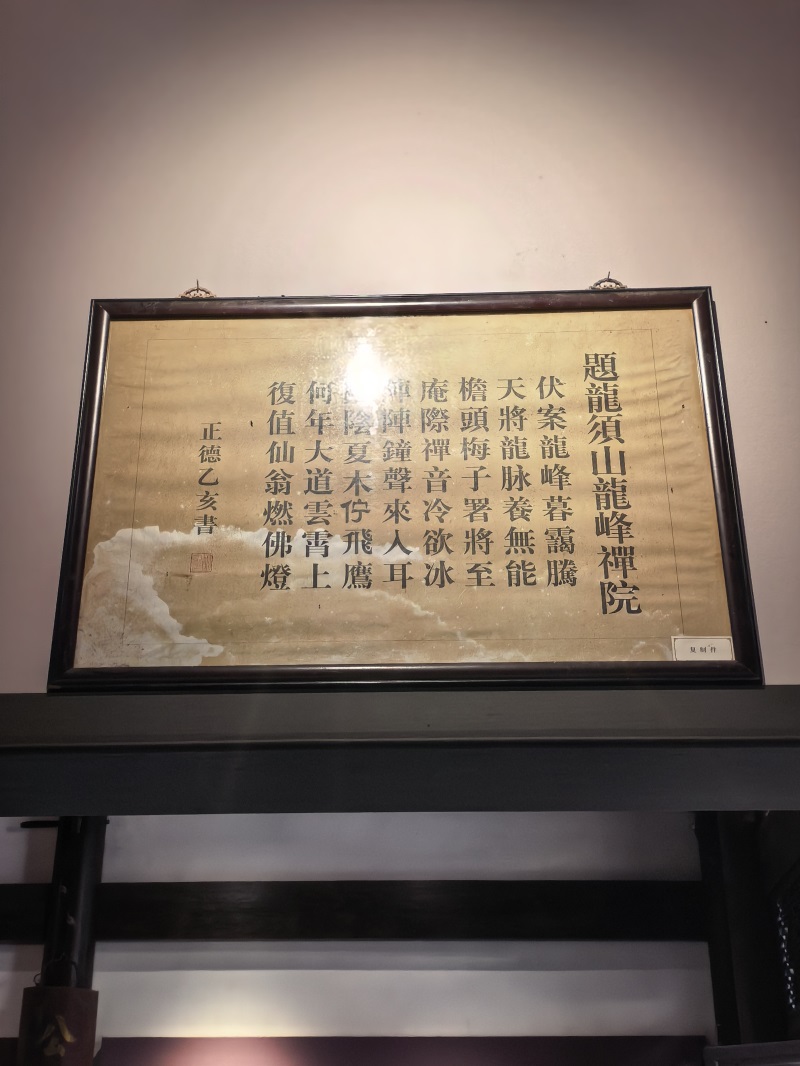 題龍須山龍峰禪院
伏案龍峰暮靄騰
天將龍脉養無能
檐頭梅子署將至
庵際禪音冷欲冰
陣陣鐘聲來入耳
陰夏木佇飛鷹
何年大道雲霄上
復值仙翁燃佛燈
正德乙亥書
复制件